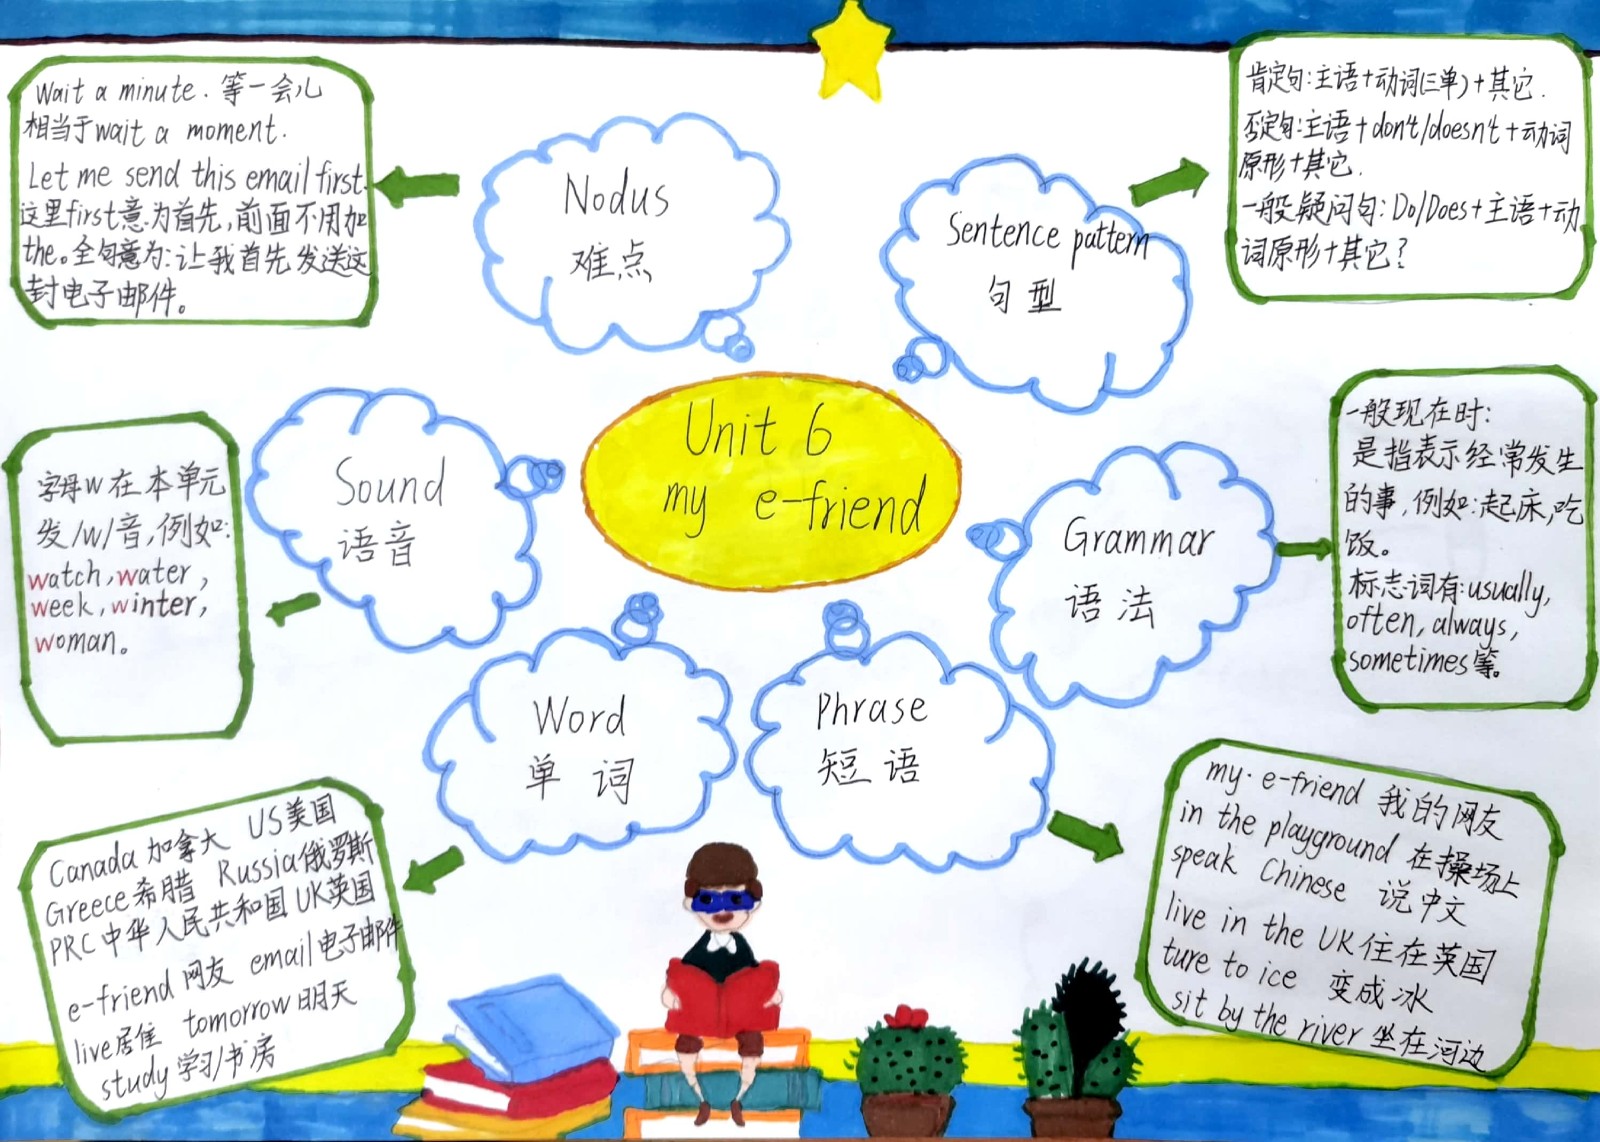 Unit 6
my e-friend
Nodus
难点
Wait a minute. 等一会儿
相当于wait a moment.
Let me send this email first.
这里first意为首先,前面不用加
the。全句意为:让我首先发送这
封电子邮件。
Sentence pattern
句型
肯定句:主语+动词(三单)+其它.
否定句:主语+don't/doesn't+动词
原形+其它.
一般疑问句:Do/Does+主语+动
词原形+其它?
Sound
语音
字母w在本单元
发/w/音,例如:
watch,water,
week,winter,
woman。
Grammar
语法
一般现在时:
是指表示经常发生
的事,例如:起床,吃
饭。
标志词有:usually,
often,always,
sometimes等。
Word
单词
Canada加拿大 US美国
Greece希腊 Russia俄罗斯
PRC中华人民共和国 UK英国
e-friend网友 email电子邮件
live居住 tomorrow明天
study学习/书房
Phrase
短语
my·e-friend 我的网友
in the playground 在操场上
speak Chinese 说中文
live in the UK住在英国
ture to ice 变成冰
sit by the river坐在河边